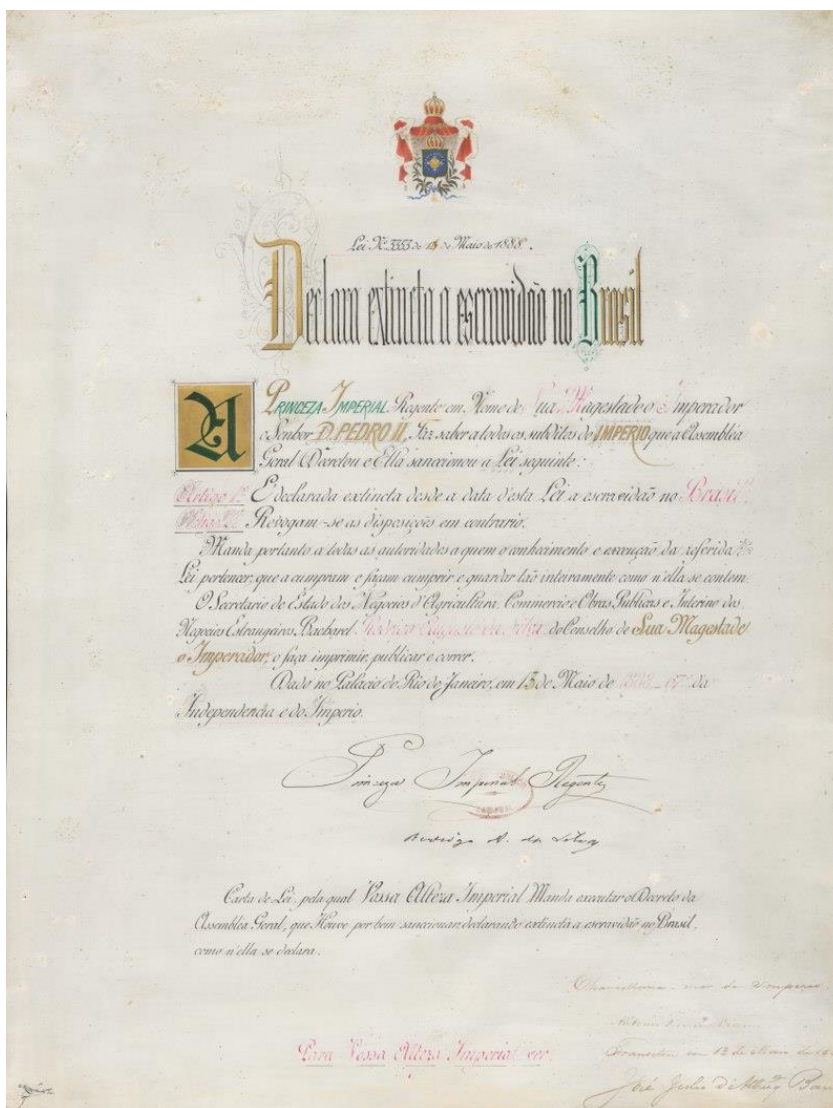 Lei Nº 3353 de 13 de Maio de 1888.
Declara extincta a escravidão no Brasil
A PRINCEZA IMPERIAL Regente em Nome de Sua Magestade o Imperador
o Senhor D. PEDRO II, Faz saber a todos os subditos do IMPERIO que a Assembléa
Geral Decretou e Ella sanccionou a Lei seguinte:
Artigo 1º É declarada extincta desde a data d'esta Lei a escravidão no Brasil.
Revogam-se as disposições em contrario.
Manda portanto a todas as autoridades a quem o conhecimento e execução da referida
Lei pertencer, que a cumpram e façam cumprir e guardar tão inteiramente como n'ella se contem.
O Secretario de Estado dos Negocios d'Agricultura, Commercio e Obras Publicas e Interino dos
Negocios Estrangeiros Bacharel Rodrigo Augusto da Silva, do Conselho de Sua Magestade
o Imperador, o faça imprimir, publicar e correr.
Dado no Palacio do Rio de Janeiro, em 13 de Maio de 1888 67º da
Independencia e do Imperio.
Princeza Imperial Regente
Rodrigo A. da Silva
Carta de Lei, pela qual Vossa Alteza Imperial Manda executar o Decreto da
Assembléa Geral, que Houve por bem sanccionar, declarando extincta a escravidão no Brasil,
como n'ella se declara.
Chancellaria-mor do Imperio.
Para Vossa Alteza Imperial ver.
Transitou em 13 de Maio de
José Julio d'Albuqº